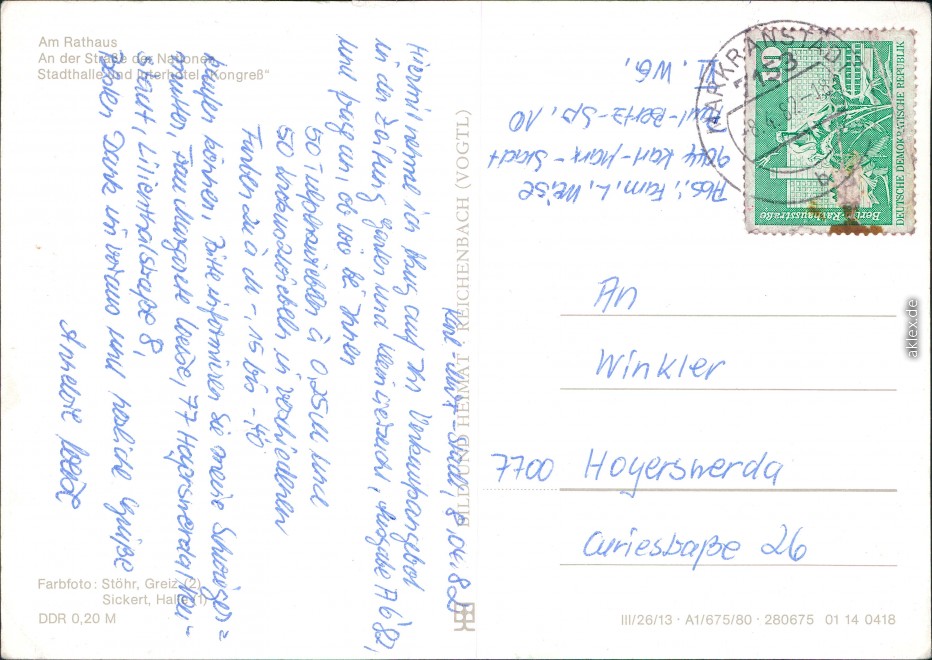 Am Rathaus
An der Straße der Nationen
Stadthalle und Interhotel „Kongreß"
Karl-Marx-Stadt, 8.04.82
Hiermit nehme ich Bezug auf Ihr Verkaufsangebot
in der Zeitung garten und kleintierzucht, Ausgabe A 6'82,
und frage an, ob wir bei Ihnen
50 Tulpenzwiebeln à 0,25M und
50 in verschiedenen
Farben zu à M -,15 bis -,40
kaufen können. Bitte informieren Sie meine Schwieger=
mutter, Frau Margarete Weise, 77 Hoyerswerda/Neu-
stadt, Lilienthalstraße 8,
Besten Dank im voraus und herzliche Grüße
Annelie Weise
Farbfoto: Stöhr, Greiz (2)
Sickert, Halle (1)
DDR 0,20 M
BILD UND HEIMAT · REICHENBACH (VOGTL)
Abs.: Fam. L. Weise
9044 Karl-Marx-Stadt
Paul-Bertz-Str. 10
II. WG.
MARKRANSTÄDT
7153
-8.4.82-18
b
10
Berlin, Rathausstraße
DEUTSCHE DEMOKRATISCHE REPUBLIK
An
Winkler
7700 Hoyerswerda
Curiestraße 26
III/26/13 · A1/675/80 · 280675 01 14 0418
aklex.de